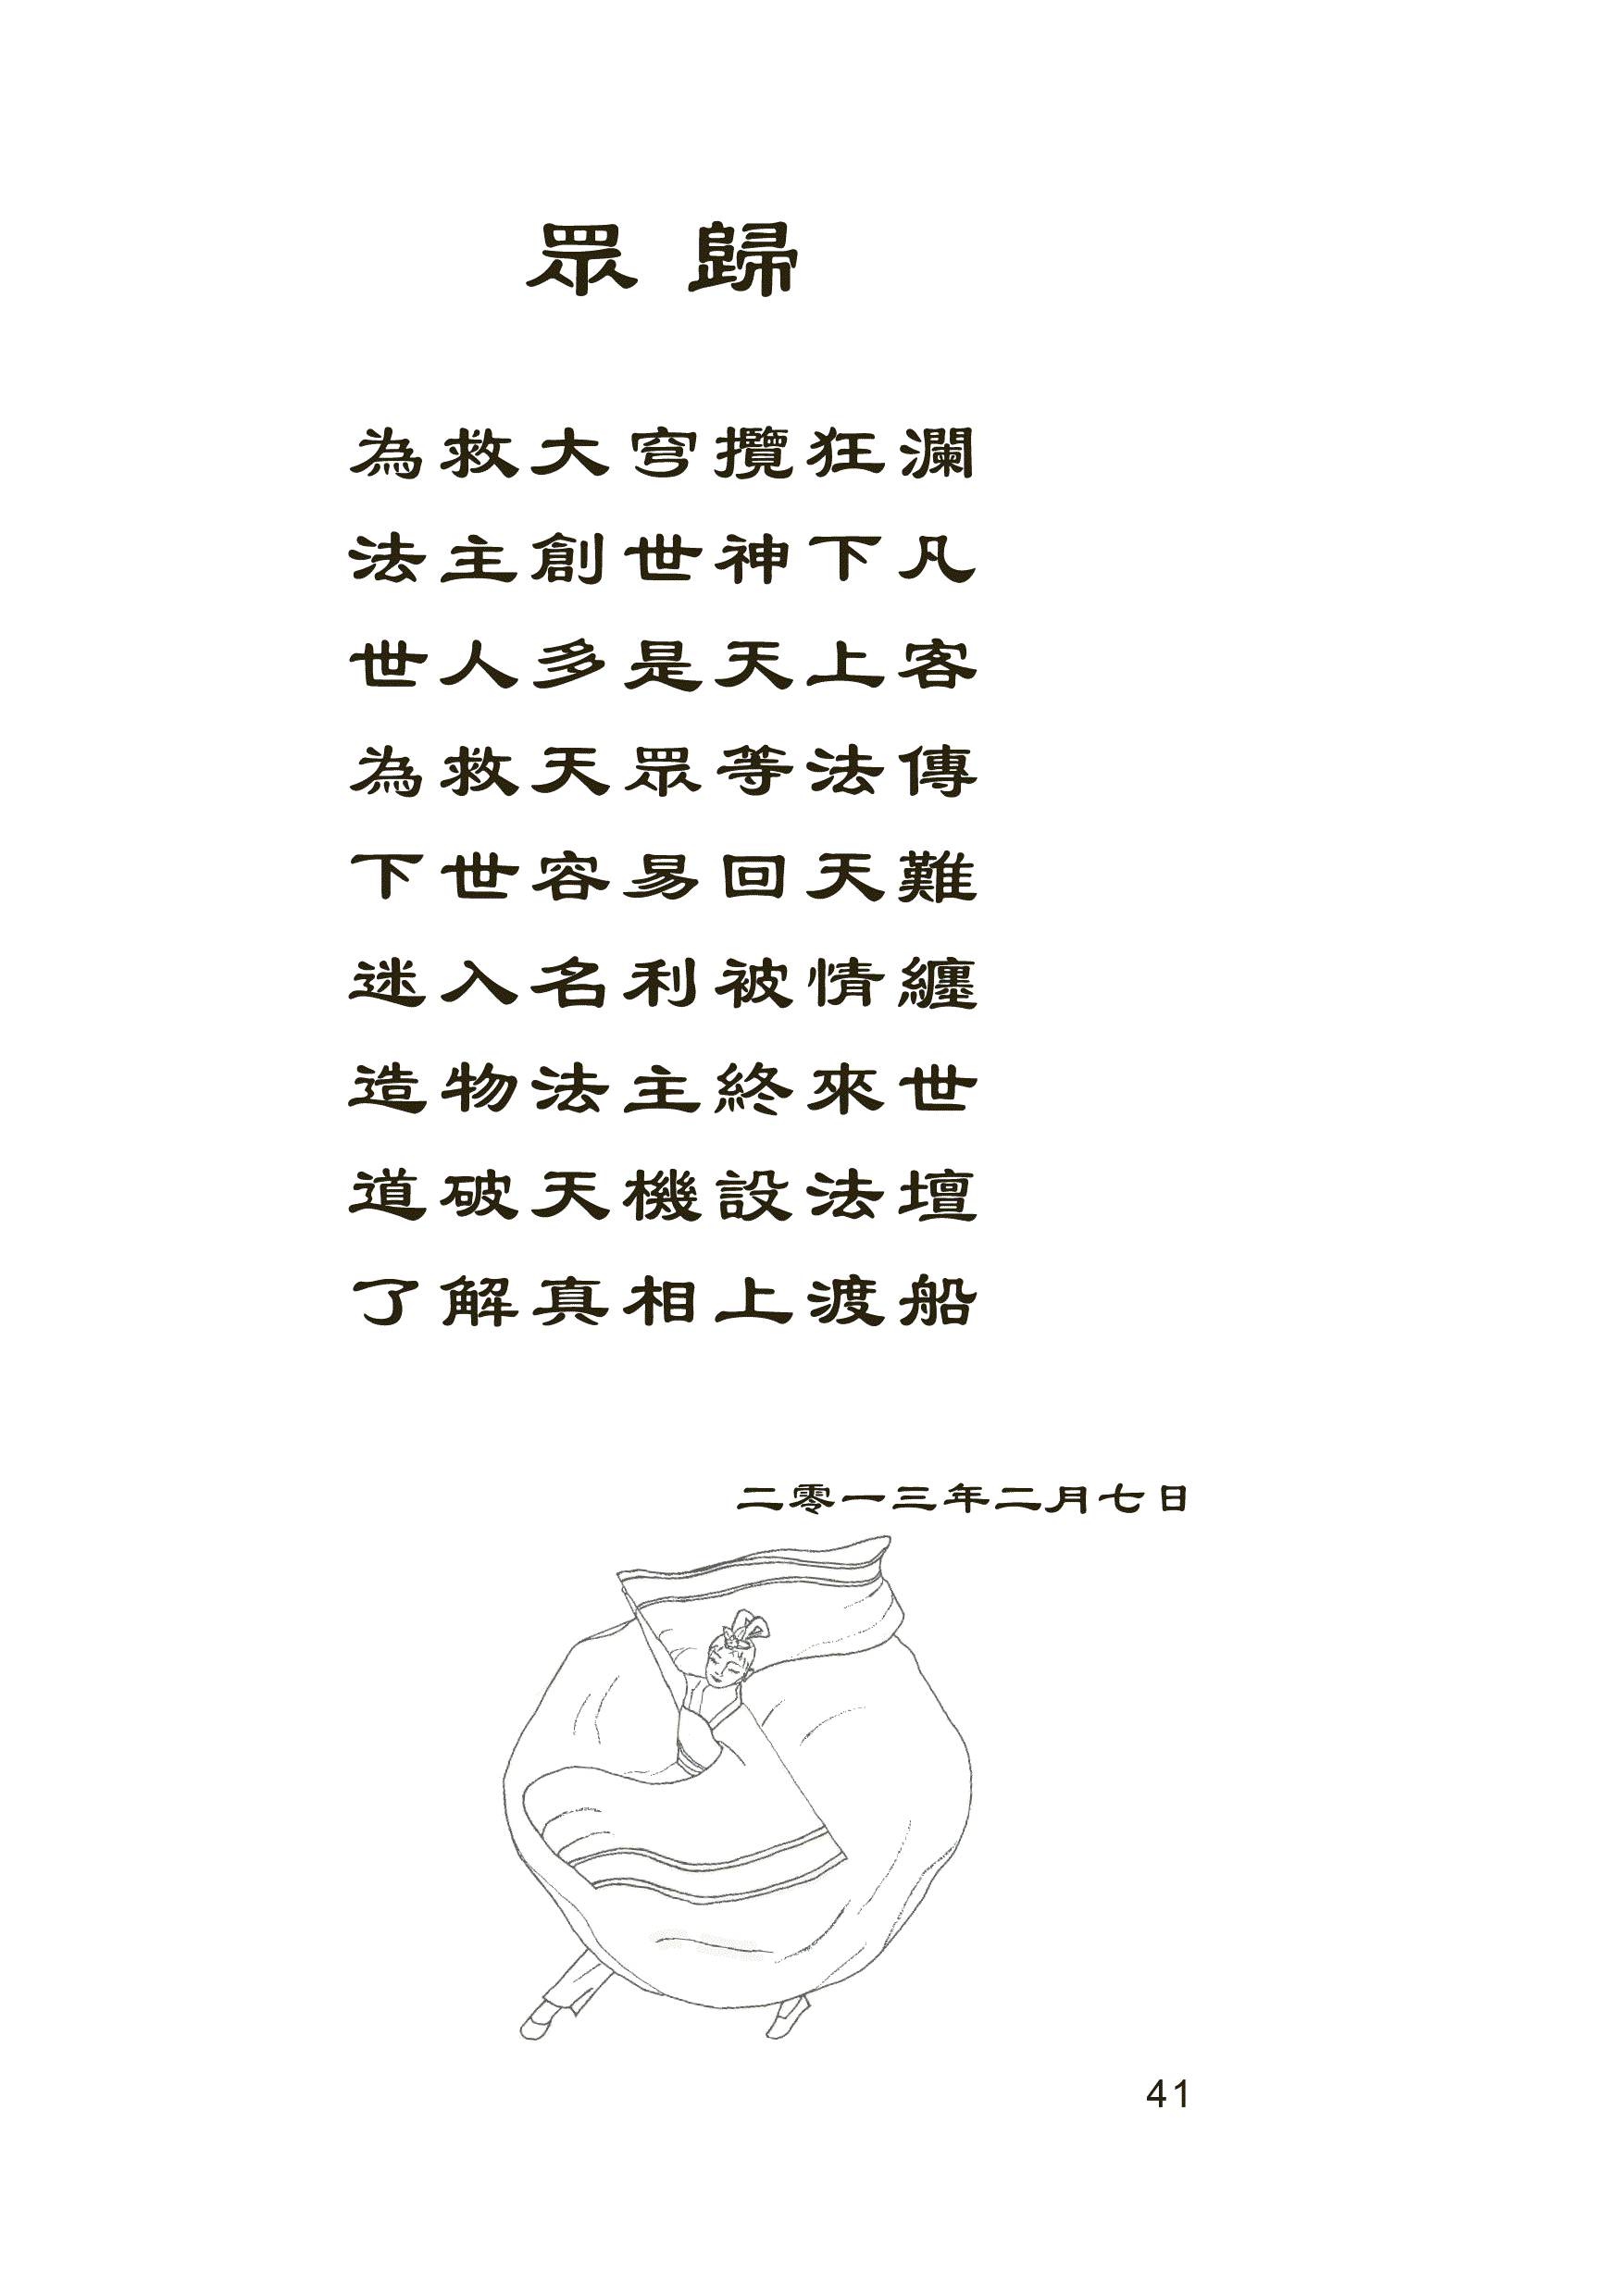 眾歸
為救大穹攬狂瀾
法主創世神下凡
世人多是天上客
為救天眾等法傳
下世容易回天難
迷入名利被情纏
造物法主終來世
道破天機設法壇
了解真相上渡船
二零一三年二月七日
41